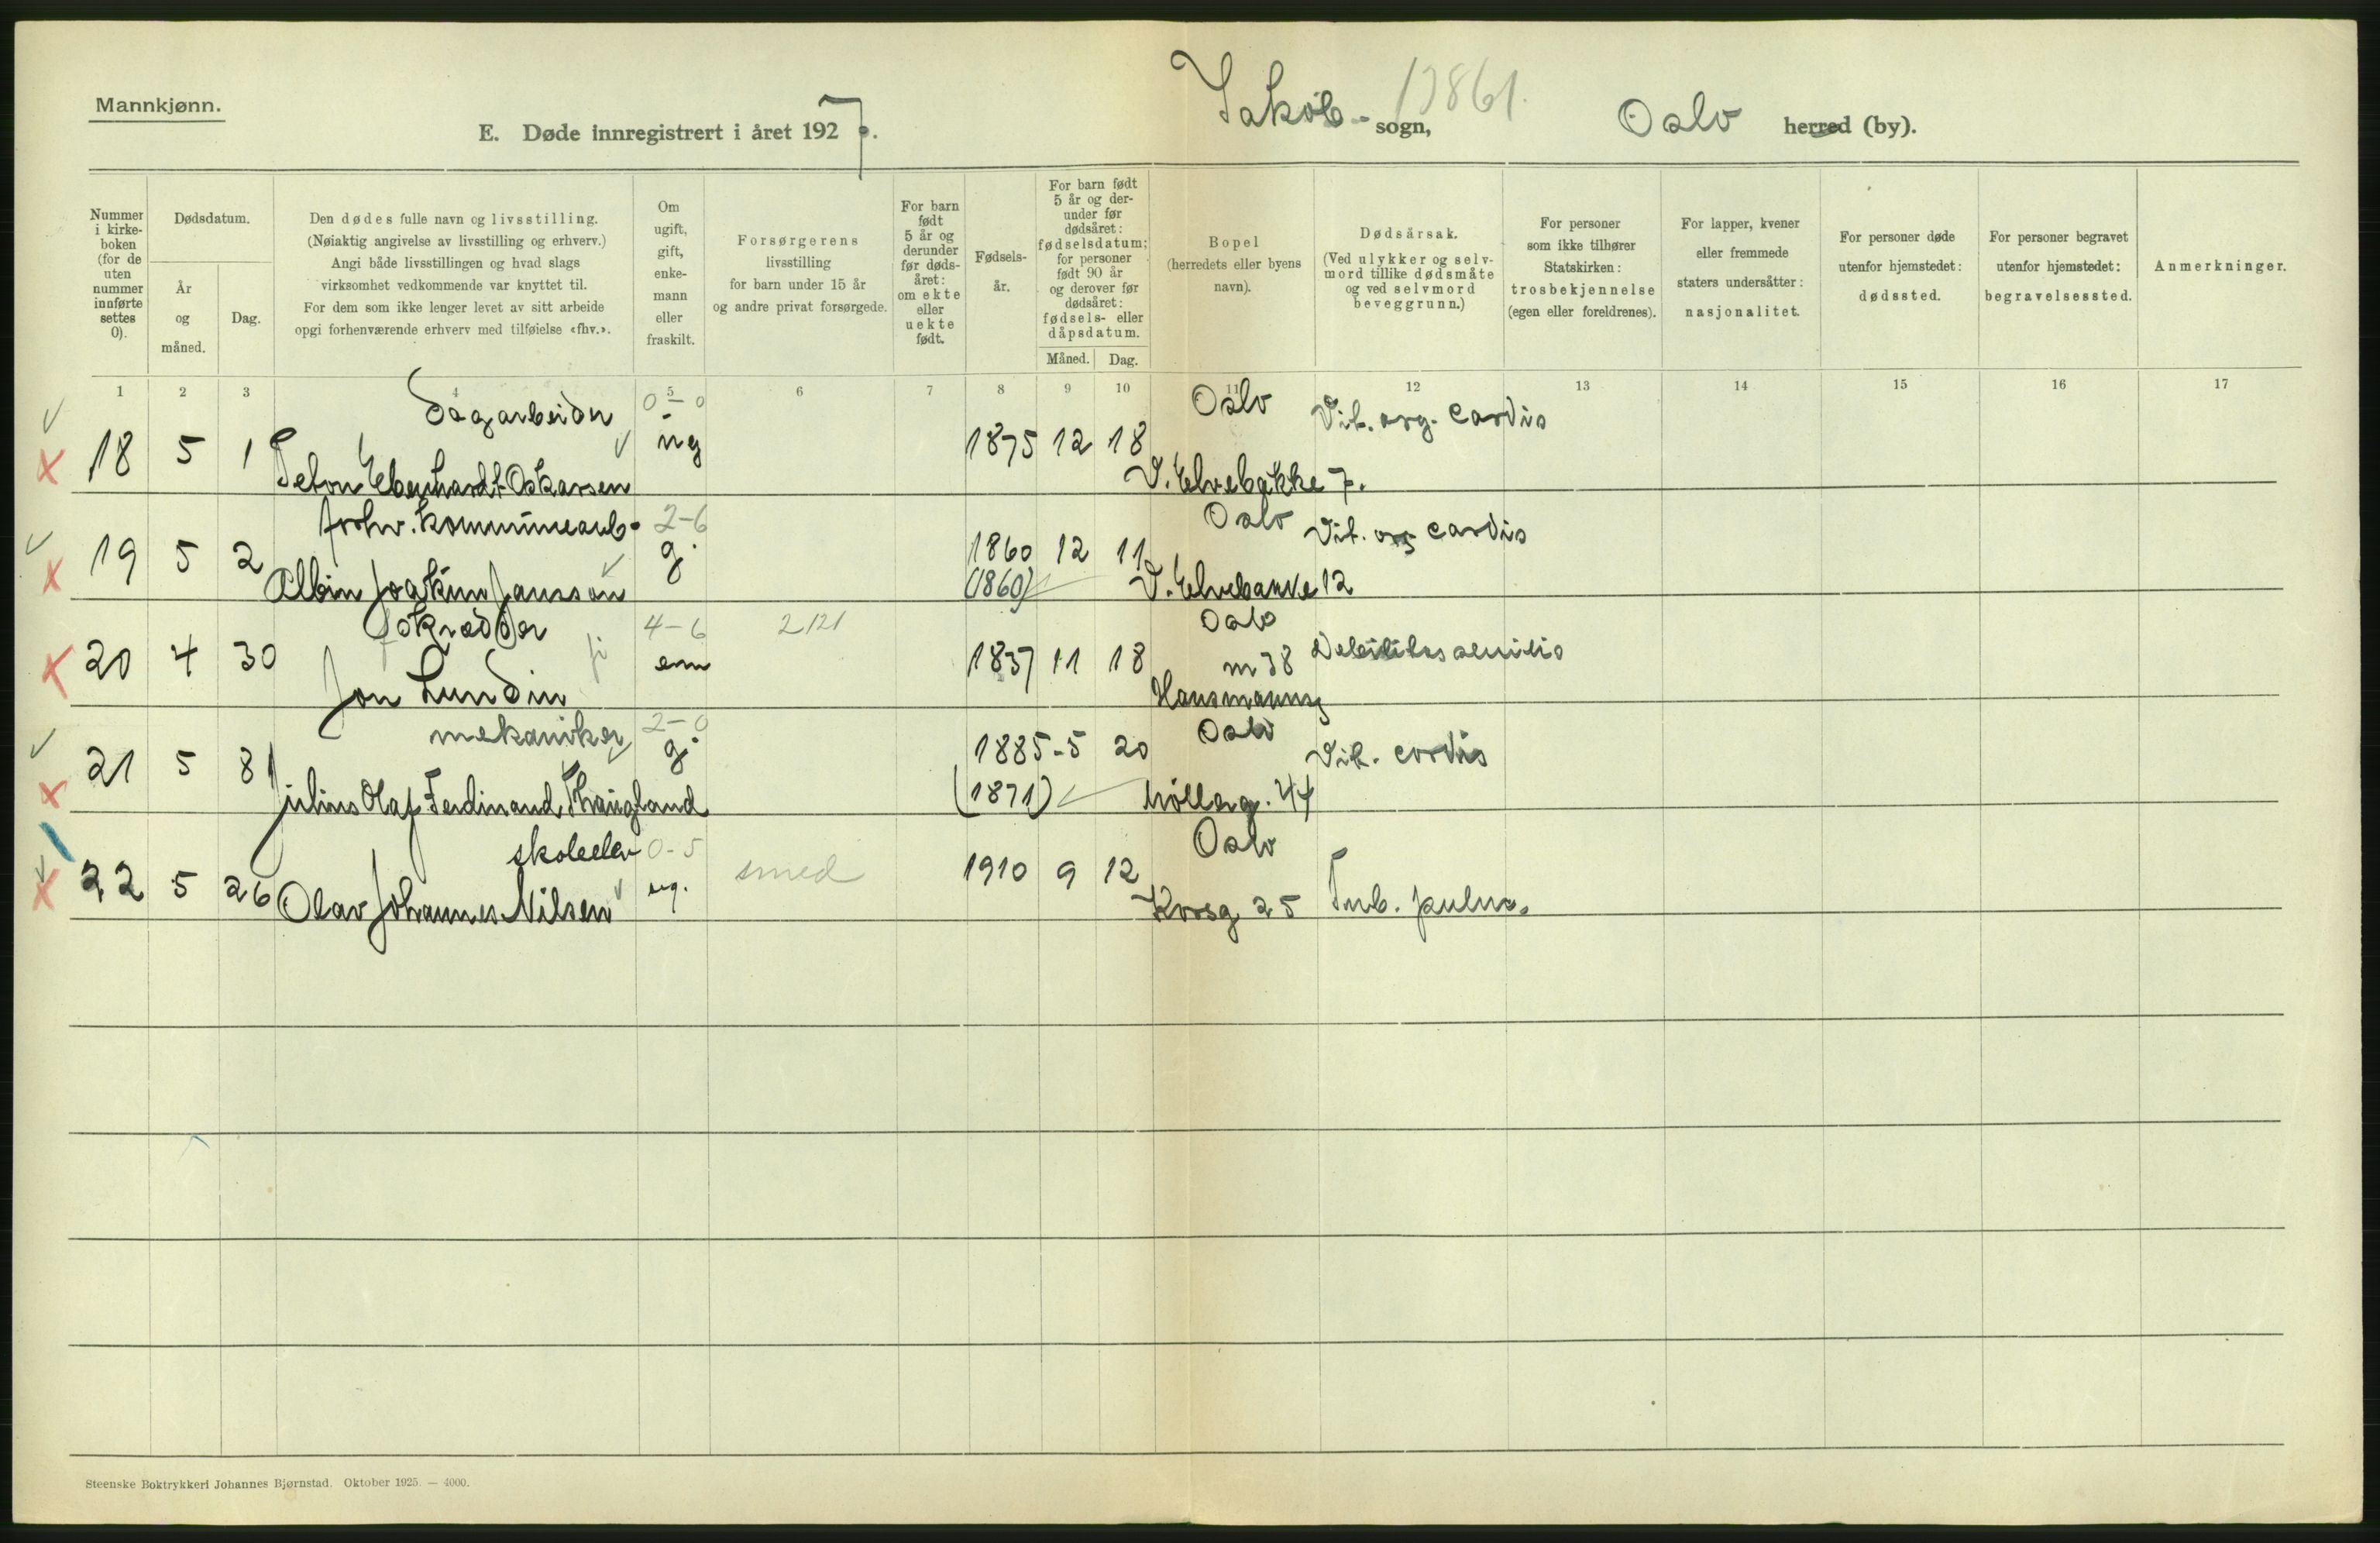 Mannkjønn.
E. Døde innregistrert i året 1927.
Jakob - sogn, 13861.
Oslo herred (by).
Nummer i kirke- boken (for de uten nummer innførte settes 0).
Dødsdatum.
År og måned.
Dag.
Den dødes fulle navn og livsstilling.
(Nøiaktig angivelse av livsstilling og erhverv.)
Angi både livsstillingen og hvad slags
virksomhet vedkommende var knyttet til.
For dem som ikke lenger levet av sitt arbeide
opgi forhenværende erhverv med tilføielse «fhv.».
Om ugift, gift, enke- mann eller fraskilt.
Forsørgerens
livsstilling
for barn under 15 år
og andre privat forsørgede.
For barn født 5 år og derunder før døds- året: om ekte eller uekte født.
Fødsels- år.
For barn født 5 år og der- under før dødsåret: fødselsdatum; for personer født 90 år og derover før dødsåret: fødsels- eller dåpsdatum.
Måned. Dag.
Bopel
(herredets eller byens
navn).
Dødsårsak.
(Ved ulykker og selv-
mord tillike dødsmåte
og ved selvmord
beveggrunn.)
For personer
som ikke tilhører
Statskirken:
trosbekjennelse
(egen eller foreldrenes).
For lapper, kvener
eller fremmede
staters undersåtter:
nasjonalitet.
For personer døde
utenfor hjemstedet:
dødssted.
For personer begravet
utenfor hjemstedet:
begravelsessted.
Anmerkninger.
1 2 3 4 5 6 7 8 9 10 11 12 13 14 15 16 17
Dagarbeider 0-0 Oslo Vit. org. cordis
18 5 1 ug 1875 12 18
Peter Eberhardt Oskarsen V. Elvebakke 7.
forhv. kommunearb. 2-6 Oslo Vit. org cordis
19 5 2 g. 1860 12 11
Albin Joakim Jansson (1860) V. Elvebakke 12
skrædder 4-6 2121 Oslo
20 4 30 em 1837 11 18 m 38 Debilitas senilis
Jon Lundin Hausmannsg
mekaniker 2-0 Oslo
21 5 8 g. 1885-5 20 Vit. cordis
Julius Olaf Ferdinand Thaugland (1871) Møllerg. 44
skoleelev 0-5 Oslo
22 5 26 Olav Johannes Nilsen ug. smed 1910 9 12
Korsg 25 Tub. pulm.
Steenske Boktrykkeri Johannes Bjørnstad. Oktober 1925. — 4000.